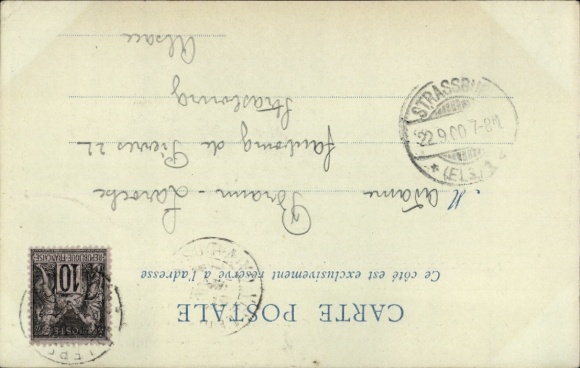 CARTE POSTALE
Ce côté est exclusivement réservé à l'adresse
Madame
Braun - Laroche
faubourg de Pierres 22
Strasbourg
Alsace
STRASSBU
22.9.00 7-8N
* (ELS.) 1 *
REPUBLIQUE FRANÇAISE
10
POSTE